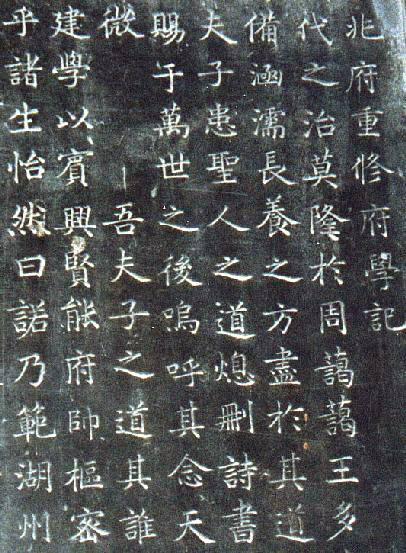 北府重修府學記
代之治莫隆於周藹藹王多
備涵濡長養之方盡於其道
夫子患聖人之道熄刪詩書
賜于萬世之後嗚呼其念天
微　吾夫子之道其誰
建學以賓興賢能府帥樞密
乎諸生怡然曰諾乃範湖州